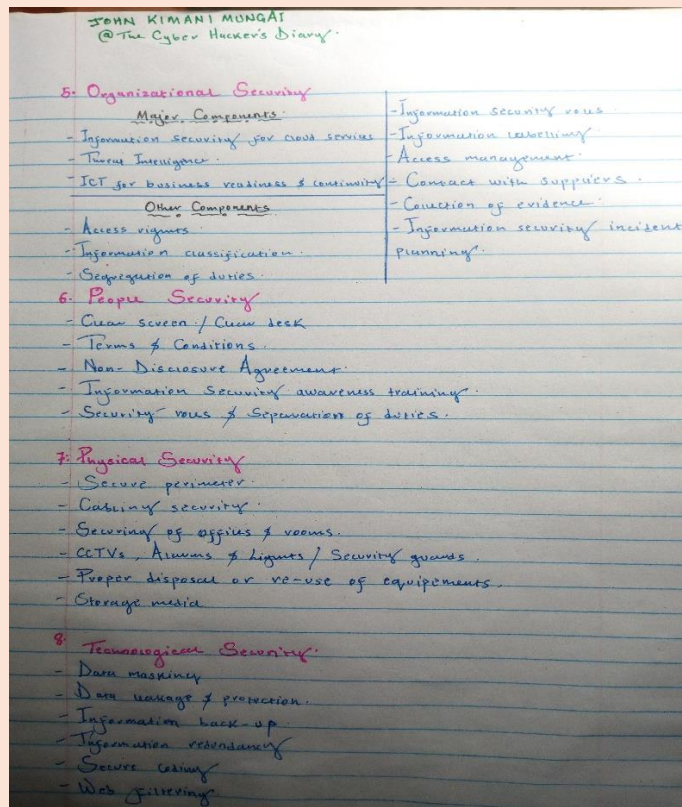 JOHN KIMANI MUNGAI
@The Cyber Hacker's Diary.
5. Organizational Security
Major Components.
- Information security for cloud services
- Threat Intelligence.
- ICT for business readiness & continuity
Other Components
- Access rights
- Information classification.
- Segregation of duties.
- Information security roles
- Information labelling
- Access management.
- Contact with suppliers.
- Collection of evidence
- Information security incident
planning.
6. People Security
- Clear screen / Clear desk
- Terms & Conditions.
- Non-Disclosure Agreement.
- Information Security awareness training.
- Security roles & Separation of duties.
7. Physical Security
- Secure perimeter.
- Cabling security.
- Securing of offices & rooms.
- CCTVs, Alarms & Lights / Security guards.
- Proper disposal or re-use of equipements.
- Storage media
8. Technological Security.
- Data masking
- Data leakage & protection.
- Information back-up
- Information redundancy
- Secure coding
- Web filtering.